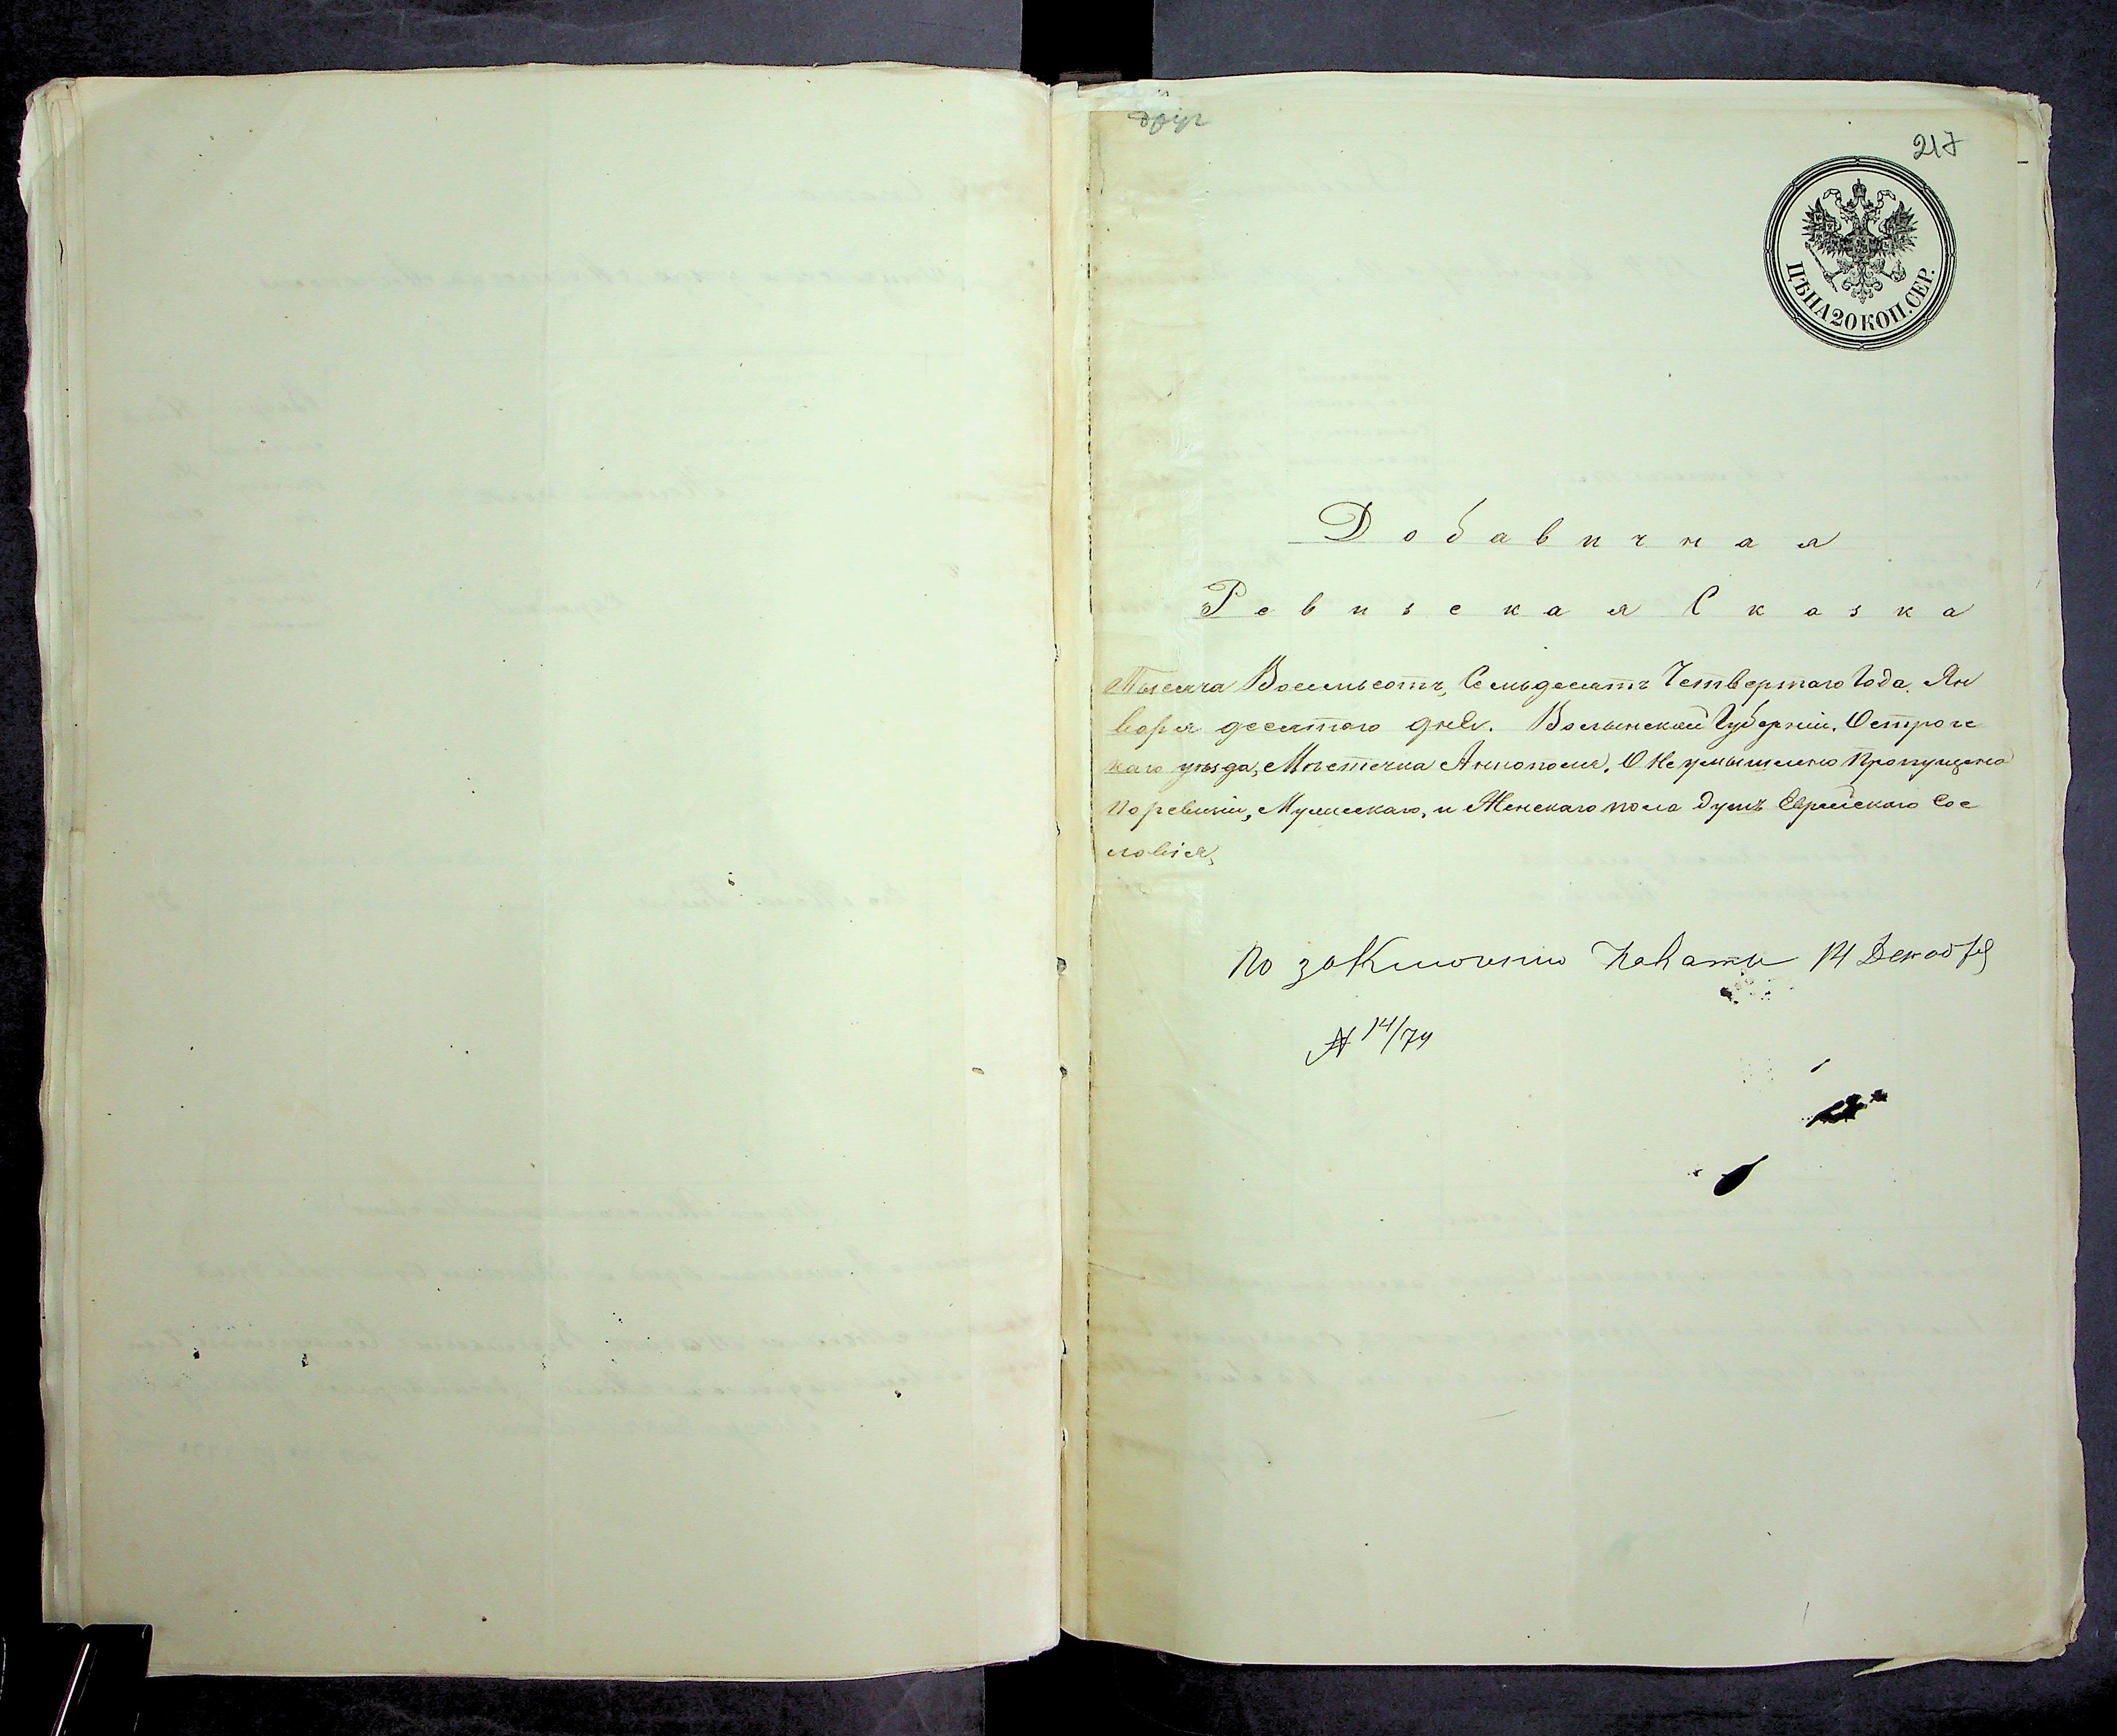 217
ЦѢНА 20 КОП. СЕР.
Добавичная
Ревизская Сказка
Тысяча Восемьсотъ, Семьдесятъ Четвертаго Года. Ян
варя десятаго дня. Волынской Губерніи. Острогс
каго уѣзда, Мѣстечка Аннополя. О Неумышлено Пропущено
по ревизіи, Мужескаго, и Женскаго пола душъ Еврейскаго Сос
ловія,
По заключенію Палаты 14 Декабря
№ 14/74